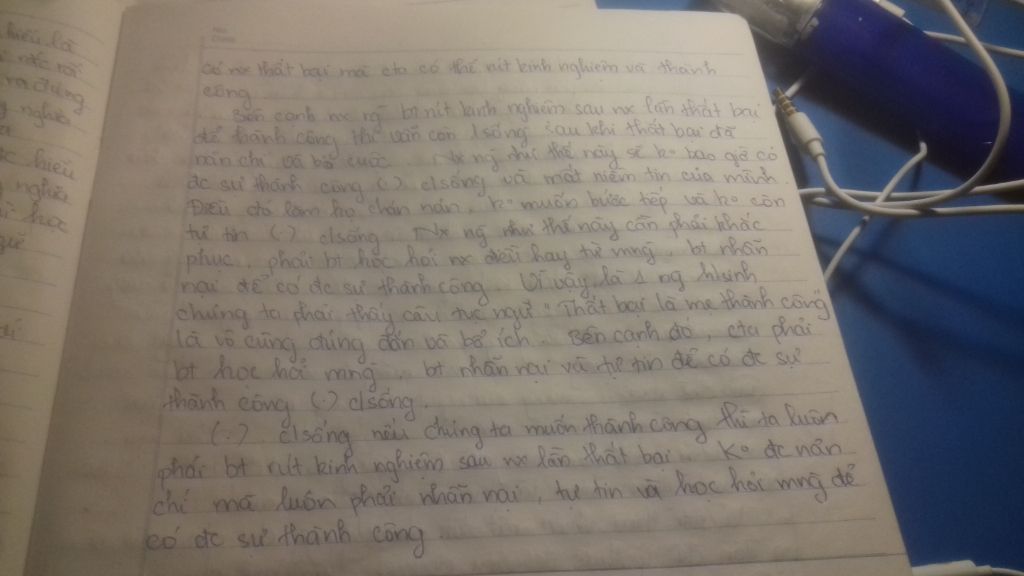 hiểu là
nghĩa
hiểu
nghĩa
học
có nx thất bại mà cta có thể rút kinh nghiệm và thành
công
Bên cạnh nx ng bt rút kinh nghiệm sau nx lần thất bại
để thành công thì vẫn còn 1 sống sau khi thất bại đã
nản chí và bỏ cuộc. Nx ng như thế này sẽ k° bao giờ có
đc sự thành công (.) c/sống và mất niềm tin của mình.
Điều đó làm họ chán nản, k° muốn bước tiếp và k° còn
tự tin (.) c/sống. Nx ng như thế này cần phải khắc
phục, phải bt học hỏi nx điều hay từ mng, bt nhẫn
nại để có đc sự thành công. Vì vậy, là 1 ng h/sinh
chúng ta phải thấy câu tục ngữ "Thất bại là mẹ thành công"
là vô cùng đúng đắn và bổ ích. Bên cạnh đó, cta phải
bt học hỏi mng, bt nhẫn nại và tự tin để có đc sự
thành công (.) c/sống.
(.) c/sống nếu chúng ta muốn thành công thì ta luôn
phải bt rút kinh nghiệm sau nx lần thất bại. K° đc nản
chí mà luôn phải nhẫn nại, tự tin và học hỏi mng để
có đc sự thành công.